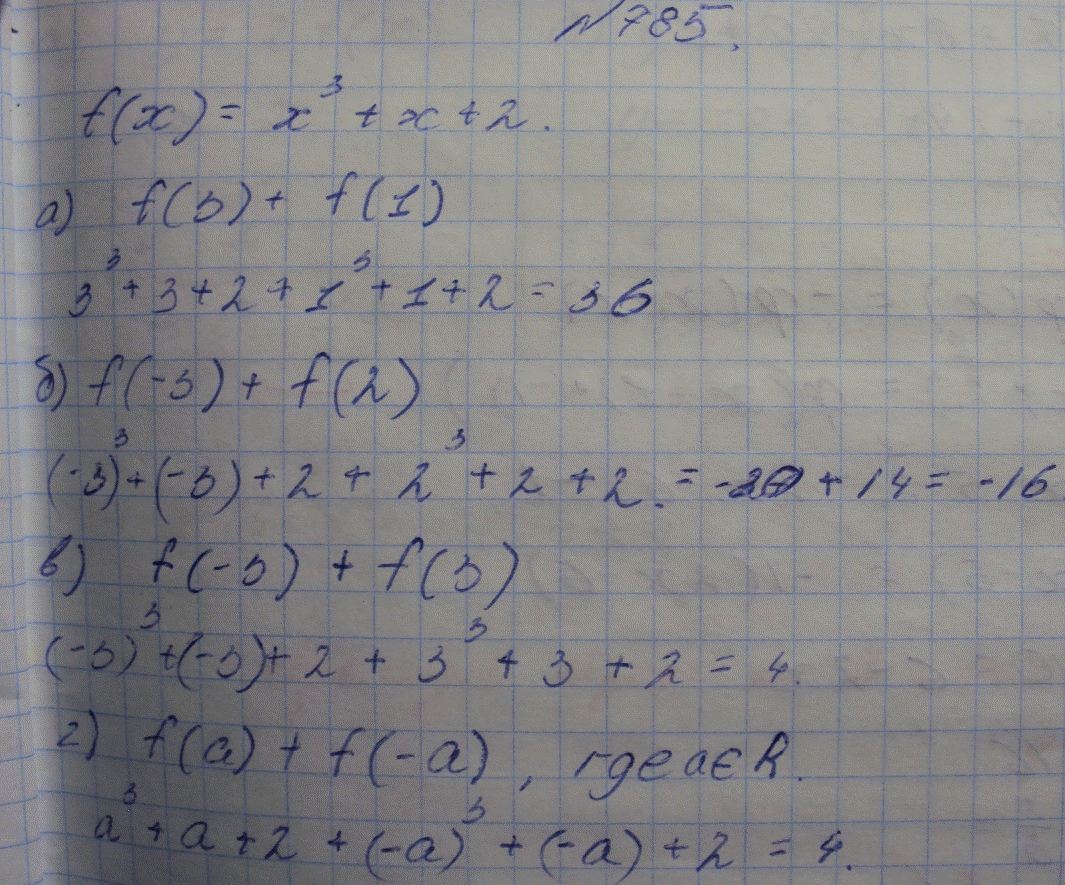 №785.
f(x) = x³ + x + 2.
а) f(3) + f(1)
3³ + 3 + 2 + 1³ + 1 + 2 = 36
б) f(-3) + f(2)
(-3)³ + (-3) + 2 + 2³ + 2 + 2. = + 14 = -16
в) f(-3) + f(3)
(-3)³ + (-3) + 2 + 3³ + 3 + 2 = 4.
г) f(a) + f(-a), где a∈R.
a³ + a + 2 + (-a)³ + (-a) + 2 = 4.